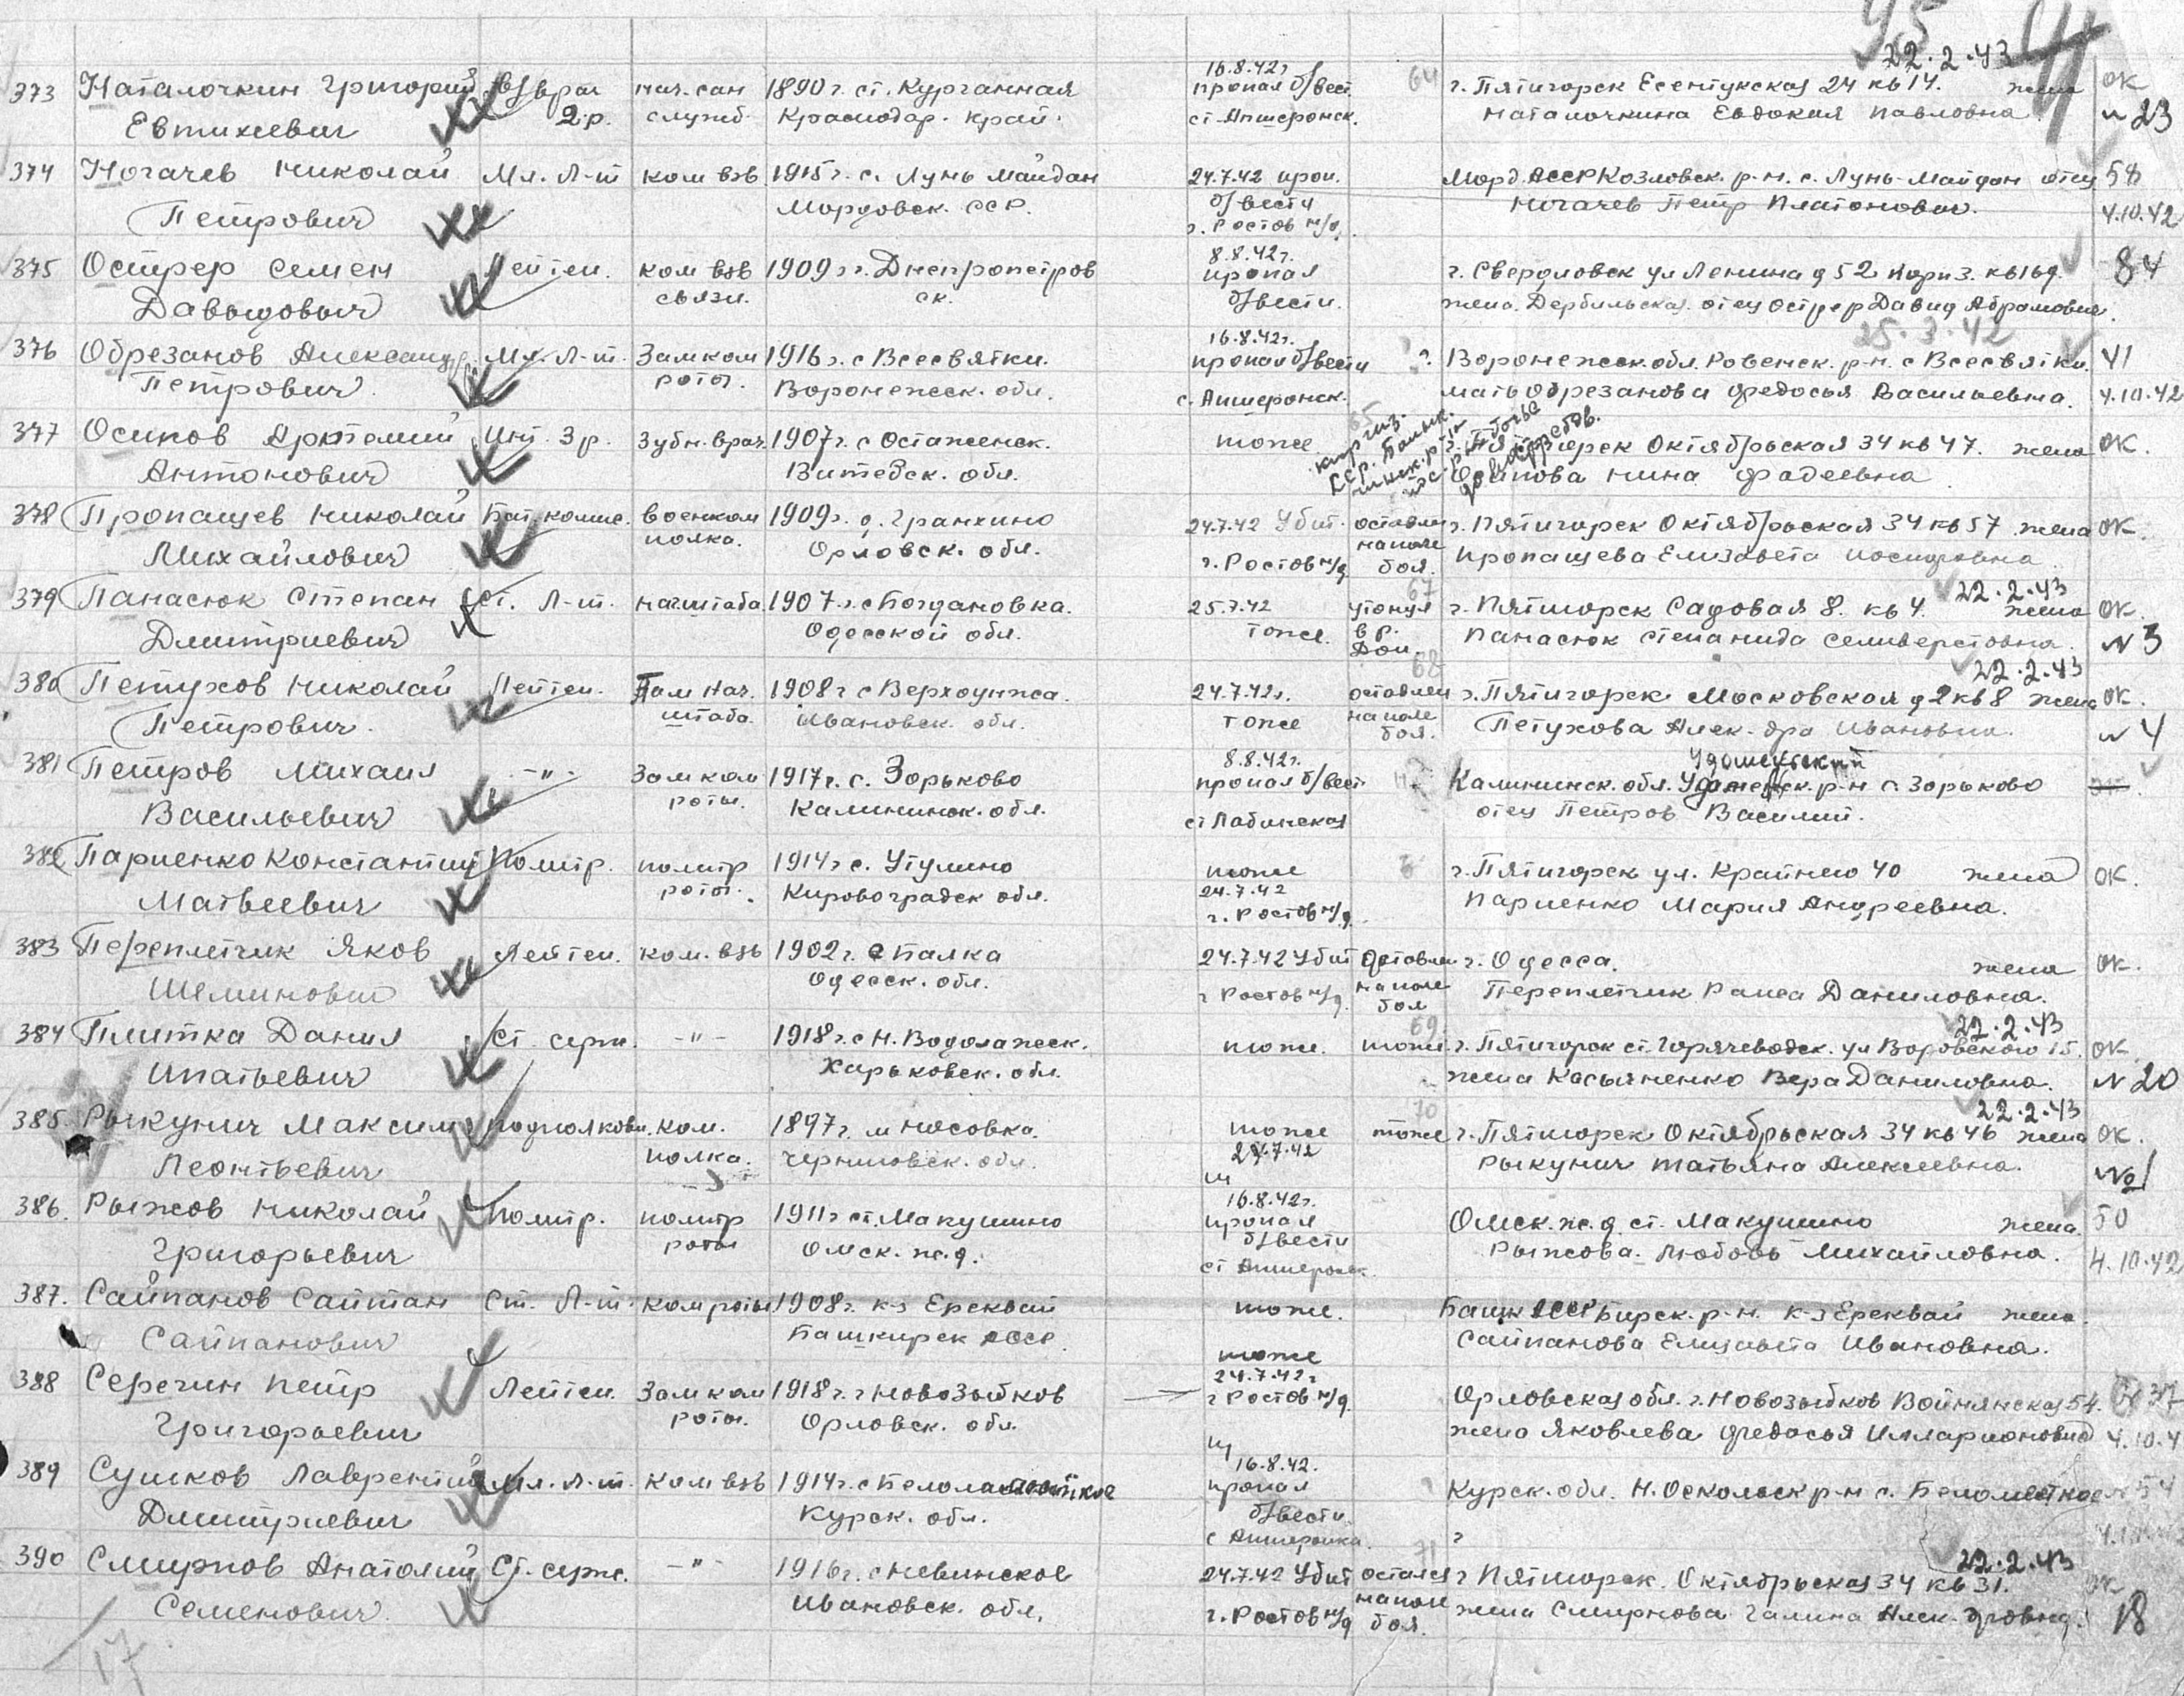 95
22.2.43
373 Наталочкин Григорий в/врач нач. сан 1890 г. ст. Курганная 16.8.42г. пропал б/вест. 64 г. Пятигорск Есентукская 24 кв 14. жена ОК
Евтихиевич 2 р. служб. Краснодар. край. ст. Апшеронск. Наталочкина Евдокия Павловна. № 23
374 Ногачев Николай Мл. Л-т ком взв. 1915 г. с. Лунь Майдан 24.7.42 проп. Морд. АССР Козловск. р-н. с. Лунь-Майдан отец 58
Петрович Мордовск. ССР. б/вести г. Ростов н/д. Ногачев Петр Платонович. 4.10.42
375 Острер Семен Лейтен. ком взв 1909 г. г. Днепропетров 8.8.42г. пропал г. Свердловск ул Ленина д 52 корп 3. кв 169. 84
Давыдович связи. ск. б/вести. жена. Дербильская. отец Острер Давид Абрамович.
25.3.42
376 Обрезанов Александр Мл. Л-т. Замком 1916 г. с Всесвятки. 16.8.42г. пропал б/вести ? Воронежск. обл. Ровенск. р-н. с Всесвятки. 41
Петрович. роты. Воронежск. обл. с. Апшеронск. мать Обрезанова Федосья Васильевна. 4.10.42
377 Осипов Артемий Инт. 3 р. Зубн. врач. 1907 г. с Остаженск. тоже 65 г. Пятигорск Октябрьская 34 кв 47. жена ОК.
Антонович Витебск. обл. Киргиз. ССР. Осипова Нина Фадеевна
378 Пропащев Николай Бат. комис. военком 1909 г. д. Гранкино 24.7.42 Убит. оставлен г. Пятигорск Октябрьская 34 кв 57 жена ОК.
Михайлович полка. Орловск. обл. г. Ростов н/д на поле боя. Пропащева Елизавета Иосифовна.
67 22.2.43
379 Панасюк Степан Ст. Л-т. нач штаба 1907 г. с Богдановка. 25.7.42 утонул г. Пятигорск Садовая 8. кв 4. жена ОК.
Дмитриевич Одесской обл. тоже. в р. Дон. Панасюк Степанида Селиверстовна. № 3
68 22.2.43
380 Петухов Николай Лейтен. Пом Нач. 1908 г с Верхоунжа. 24.7.42г. оставлен г. Пятигорск Московская д 2 кв 8 жена ОК.
Петрович. штаба. Ивановск. обл. тоже на поле боя. Петухова Алек-дра Ивановна. № 4
Удомельский
381 Петров Михаил -"- Замком 1917 г. с. Зорьково 8.8.42г. пропал б/вест Калининск. обл. р-н с. Зорьково
Васильевич роты. Калининск. обл. ст Лабинская отец Петров Василий.
382 Париенко Константин Политр. политр 1914 г с. Утулино тоже г. Пятигорск ул. Крайнего 40 жена ОК.
Матвеевич роты. Кировоградск обл. 24.7.42 г. Ростов н/д. Париенко Мария Андреевна.
383 Переплетчик Яков Лейтен. ком. взв 1902 г. с Балка 24.7.42 Убит Оставлен г. Одесса. жена ОК.
Шлимович Одесск. обл. г Ростов н/д. на поле боя Переплетчик Раиса Даниловна.
69. 22.2.43
384 Плитка Данил Ст. серж. -"- 1918 г. с Н. Водолажеск. тоже. тоже. г. Пятигорск ст. Горячеводск. ул Воровского 15. ОК
Ипатьевич Харьковск. обл. жена Касьяненко Вера Даниловна. № 20
70 22.2.43
385. Рыкунич Максим подполковн. ком. 1897 г. м Носовка. тоже тоже г. Пятигорск Октябрьская 34 кв 46 жена ОК.
Леонтьевич полка. Черниговск. обл. Рыкунич Татьяна Алексеевна. №1
386. Рыжов Николай Политр. политр 1911 г ст. Макушино 16.8.42г. пропал Омск. ж.д. ст. Макушино жена. 50
Григорьевич роты Омск. ж.д. б/вести ст Апшеронск. Рыжова. Любовь Михайловна. 4.10.42
387. Сайпанов Сайтан Ст. Л-т. ком роты 1908 г. к-з Ереквай тоже. Башк АССР Бирск. р-н. к-з Ереквай жена
Сайпанович Башкирск АССР. Сайпанова Елизавета Ивановна.
388 Серегин Петр Лейтен. Замком 1918 г. г Новозыбков тоже 24.7.42г г Ростов н/д. Орловская обл. г. Новозыбков Войнянская 54. 37
Григорьевич роты. Орловск. обл. жена Яковлева Федосья Илларионовна 4.10.4
389 Сушков Лаврентий Мл. Л-т. ком взв 1914 г. с 16.8.42. пропал Курск. обл. Н. Оскольск р-н с. Беломестное 54
Дмитриевич Курск. обл. б/вести. с Апшеронка. ?
71 22.2.43
390 Смирнов Анатолий Ст. серж. -"- 1916 г. с Невинское 24.7.42 Убит остался г Пятигорск. Октябрьская 34 кв 31. ОК
Семенович. Ивановск. обл. г. Ростов н/д на поле боя. жена Смирнова Галина Алек-дровна. 18
17